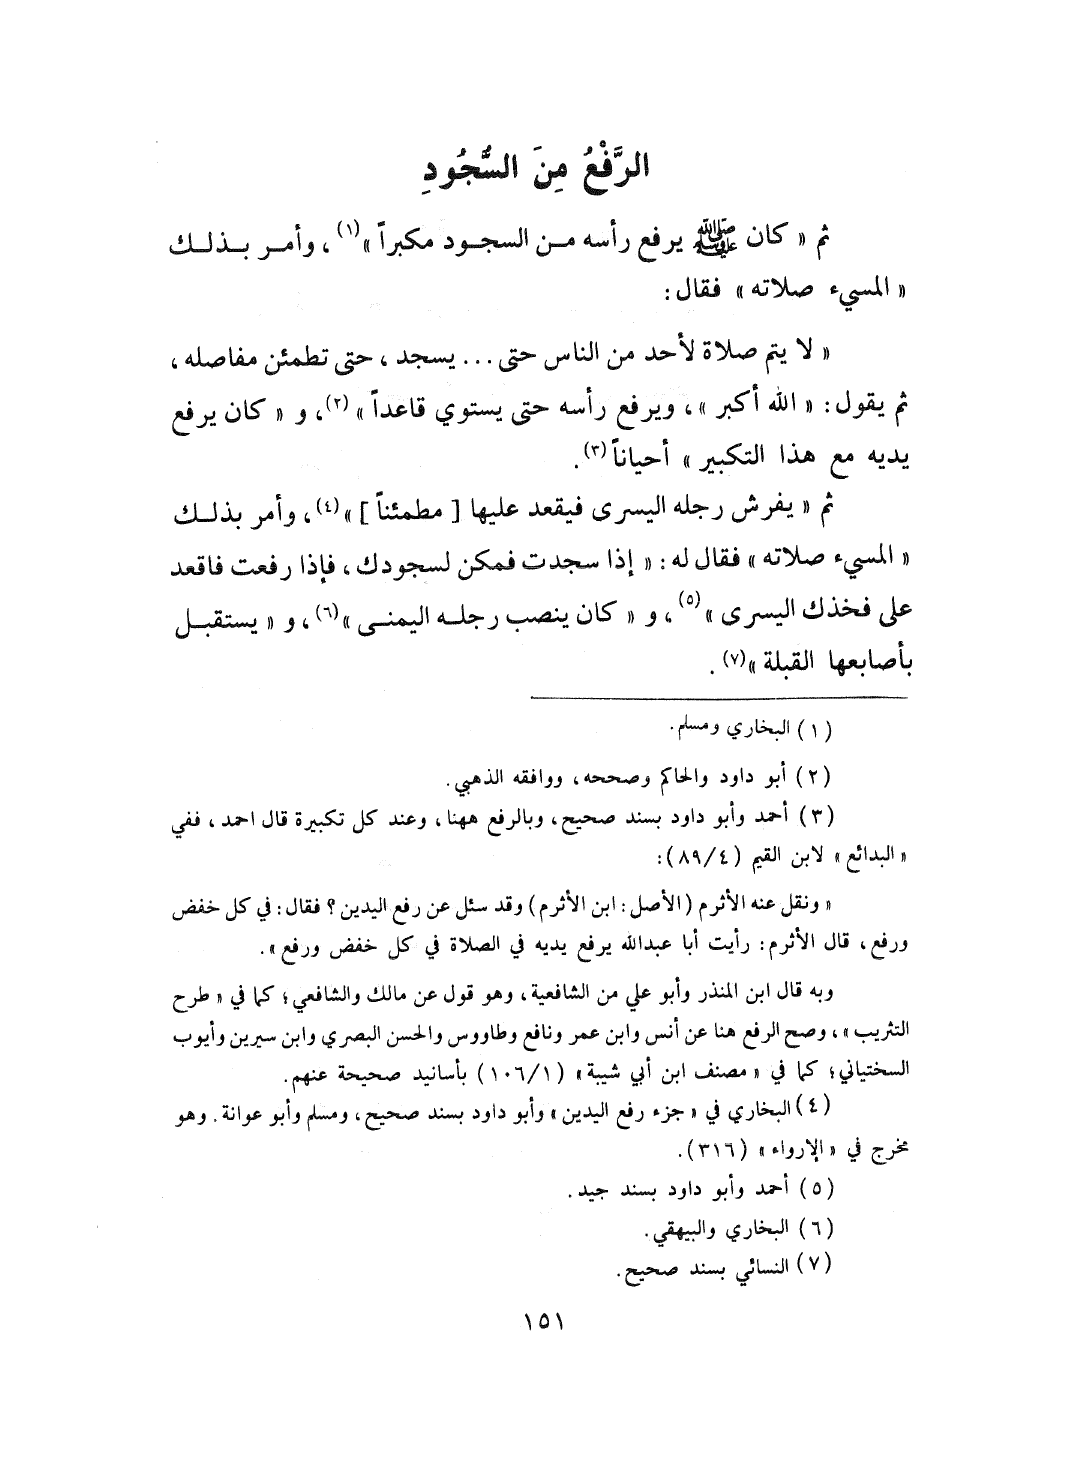 الرَّفْعُ مِنَ السُّجُودِ
ثم « كان ﷺ يرفع رأسه من السجود مكبراً »(١) ، وأمر بذلك
« المسيء صلاته » فقال :
« لا يتم صلاة لأحد من الناس حتى ... يسجد ، حتى تطمئن مفاصله ،
ثم يقول : « الله أكبر » ، ويرفع رأسه حتى يستوي قاعداً » (٢)، و « كان يرفع
يديه مع هذا التكبير » أحياناً (٣) .
ثم « يفرش رجله اليسرى فيقعد عليها [ مطمئناً ] »(٤) ، وأمر بذلك
« المسيء صلاته » فقال له : « إذا سجدت فمكن لسجودك ، فإذا رفعت فاقعد
على فخذك اليسرى »(٥) ، و « كان ينصب رجله اليمنى »(٦) ، و « يستقبل
بأصابعها القبلة »(٧) .
(١) البخاري ومسلم .
(٢) أبو داود والحاكم وصححه ، ووافقه الذهبي .
(٣) أحمد وأبو داود بسند صحيح ، وبالرفع ههنا ، وعند كل تكبيرة قال احمد ، ففي
« البدائع » لابن القيم (٨٩/٤) :
« ونقل عنه الأثرم (الأصل : ابن الأثرم) وقد سئل عن رفع اليدين ؟ فقال : في كل خفض
ورفع ، قال الأثرم : رأيت أبا عبدالله يرفع يديه في الصلاة في كل خفض ورفع » .
وبه قال ابن المنذر وأبو علي من الشافعية ، وهو قول عن مالك والشافعي ؛ كما في « طرح
التثريب » ، وصح الرفع هنا عن أنس وابن عمر ونافع وطاووس والحسن البصري وابن سيرين وأيوب
السختياني ؛ كما في « مصنف ابن أبي شيبة » (١٠٦/١) بأسانيد صحيحة عنهم .
(٤) البخاري في « جزء رفع اليدين » وأبو داود بسند صحيح ، ومسلم وأبو عوانة . وهو
مخرج في « الإرواء » (٣١٦) .
(٥) أحمد وأبو داود بسند جيد .
(٦) البخاري والبيهقي .
(٧) النسائي بسند صحيح .
١٥١